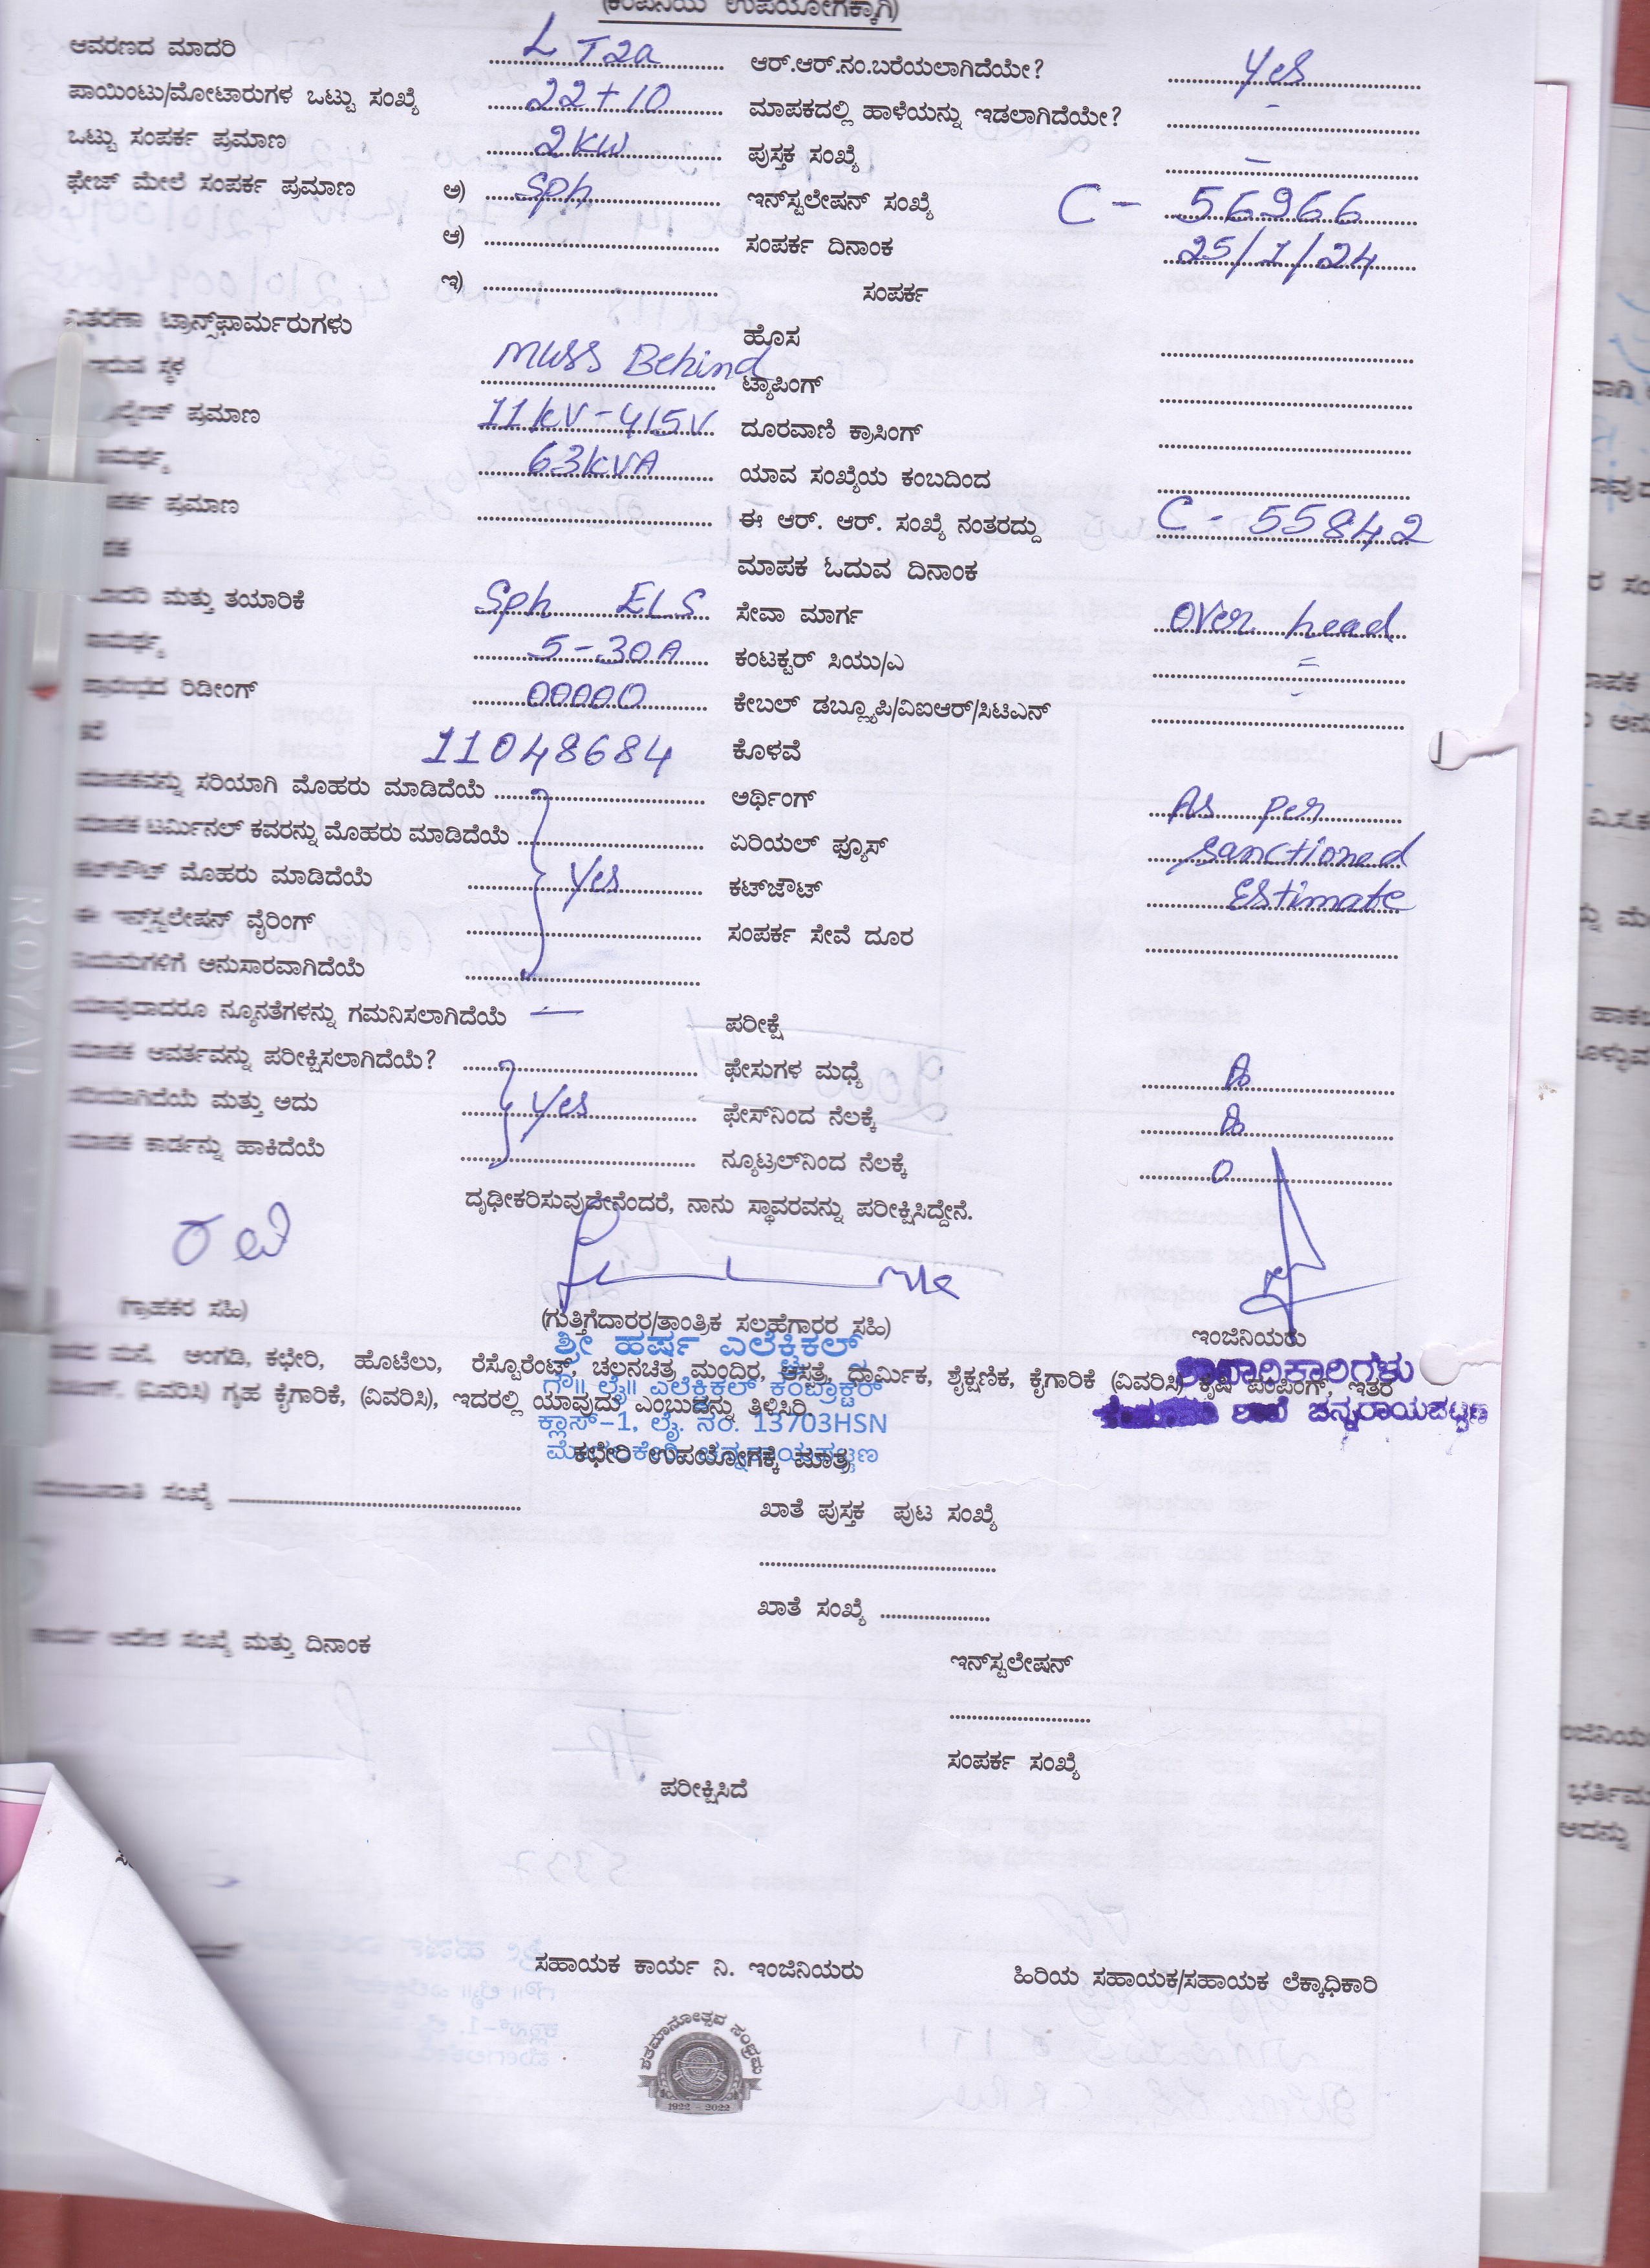 (ಕಂಪನಿಯ ಉಪಯೋಗಕ್ಕಾಗಿ)
ಆವರಣದ ಮಾದರಿ LT2a ಆರ್.ಆರ್.ನಂ.ಬರೆಯಲಾಗಿದೆಯೇ? Yes
ಪಾಯಿಂಟು/ಮೋಟಾರುಗಳ ಒಟ್ಟು ಸಂಖ್ಯೆ 22+10 ಮಾಪಕದಲ್ಲಿ ಹಾಳೆಯನ್ನು ಇಡಲಾಗಿದೆಯೇ? -
ಒಟ್ಟು ಸಂಪರ್ಕ ಪ್ರಮಾಣ 2KW ಪುಸ್ತಕ ಸಂಖ್ಯೆ -
ಫೇಜ್ ಮೇಲೆ ಸಂಪರ್ಕ ಪ್ರಮಾಣ ಅ) Sph ಇನ್‌ಸ್ಟಲೇಷನ್ ಸಂಖ್ಯೆ C - 56966
ಆ) ಸಂಪರ್ಕ ದಿನಾಂಕ 25/1/24
ಇ) ಸಂಪರ್ಕ
ವಿತರಣಾ ಟ್ರಾನ್ಸ್‌ಫಾರ್ಮರುಗಳು ಹೊಸ
ಇರುವ ಸ್ಥಳ MUSS Behind ಟ್ಯಾಪಿಂಗ್
ಪ್ರಮಾಣ 11kV-415V ದೂರವಾಣಿ ಕ್ರಾಸಿಂಗ್
63kVA ಯಾವ ಸಂಖ್ಯೆಯ ಕಂಬದಿಂದ
ಪ್ರಮಾಣ ಈ ಆರ್. ಆರ್. ಸಂಖ್ಯೆ ನಂತರದ್ದು C - 55842
ಮಾಪಕ ಓದುವ ದಿನಾಂಕ
ಮಾದರಿ ಮತ್ತು ತಯಾರಿಕೆ Sph ELS ಸೇವಾ ಮಾರ್ಗ Over head
5-30A ಕಂಟಕ್ಟರ್ ಸಿಯು/ಎ =
ಪ್ರಾರಂಭದ ರಿಡೀಂಗ್ 00000 ಕೇಬಲ್ ಡಬ್ಲ್ಯೂಪಿ/ವಿಐಆರ್/ಸಿಟಿಎನ್
11048684 ಕೊಳವೆ
ಮಾಪಕವನ್ನು ಸರಿಯಾಗಿ ಮೊಹರು ಮಾಡಿದೆಯೆ ಅರ್ಥಿಂಗ್ As per
ಮಾಪಕ ಟರ್ಮಿನಲ್ ಕವರನ್ನು ಮೊಹರು ಮಾಡಿದೆಯೆ ಏರಿಯಲ್ ಫ್ಯೂಸ್ sanctioned
ಕಟ್‌ಔಟ್ ಮೊಹರು ಮಾಡಿದೆಯೆ Yes ಕಟ್‌ಔಟ್ Estimate
ಈ ಇನ್‌ಸ್ಟಲೇಷನ್ ವೈರಿಂಗ್ ಸಂಪರ್ಕ ಸೇವೆ ದೂರ
ನಿಯಮಗಳಿಗೆ ಅನುಸಾರವಾಗಿದೆಯೆ
ಯಾವುದಾದರೂ ನ್ಯೂನತೆಗಳನ್ನು ಗಮನಿಸಲಾಗಿದೆಯೆ — ಪರೀಕ್ಷೆ
ಮಾಪಕ ಆವರ್ತವನ್ನು ಪರೀಕ್ಷಿಸಲಾಗಿದೆಯೆ? ಫೇಸುಗಳ ಮಧ್ಯೆ
ಸರಿಯಾಗಿದೆಯೆ ಮತ್ತು ಅದು Yes ಫೇಸ್‌ನಿಂದ ನೆಲಕ್ಕೆ
ಮಾಪಕ ಕಾರ್ಡನ್ನು ಹಾಕಿದೆಯೆ ನ್ಯೂಟ್ರಲ್‌ನಿಂದ ನೆಲಕ್ಕೆ 0
ದೃಢೀಕರಿಸುವುದೇನೆಂದರೆ, ನಾನು ಸ್ಥಾವರವನ್ನು ಪರೀಕ್ಷಿಸಿದ್ದೇನೆ.
ರವಿ
(ಗ್ರಾಹಕರ ಸಹಿ) (ಗುತ್ತಿಗೆದಾರರ/ತಾಂತ್ರಿಕ ಸಲಹೆಗಾರರ ಸಹಿ) ಇಂಜಿನಿಯರು
ಶ್ರೀ ಹರ್ಷ ಎಲೆಕ್ಟ್ರಿಕಲ್
ಮನೆ, ಅಂಗಡಿ, ಕಛೇರಿ, ಹೊಟೆಲು, ರೆಸ್ಟೊರೆಂಟ್, ಚಲನಚಿತ್ರ ಮಂದಿರ, ಆಸತ್ರೆ, ಧಾರ್ಮಿಕ, ಶೈಕ್ಷಣಿಕ, ಕೈಗಾರಿಕೆ (ವಿವರಿಸಿ) ಕೃಷಿ ಪಂಪಿಂಗ್, ಇತರ
ಗೌ॥ ಲೈ॥ ಎಲೆಕ್ಟ್ರಿಕಲ್ ಕಂಟ್ರಾಕ್ಟರ್
(ವಿವರಿಸಿ) ಗೃಹ ಕೈಗಾರಿಕೆ, (ವಿವರಿಸಿ), ಇದರಲ್ಲಿ ಯಾವುದು ಎಂಬುದನ್ನು ತಿಳಿಸಿರಿ.
ಕ್ಲಾಸ್-1, ಲೈ. ನಂ. 13703HSN
ಶಾಖೆ ಚನ್ನರಾಯಪಟ್ಟಣ
ಕಛೇರಿ ಉಪಯೋಗಕ್ಕೆ ಮಾತ್ರ
ಸಂಖ್ಯೆ ಖಾತೆ ಪುಸ್ತಕ ಪುಟ ಸಂಖ್ಯೆ
ಖಾತೆ ಸಂಖ್ಯೆ
ಕಾರ್ಯ ಆದೇಶ ಸಂಖ್ಯೆ ಮತ್ತು ದಿನಾಂಕ
ಇನ್‌ಸ್ಟಲೇಷನ್
ಸಂಪರ್ಕ ಸಂಖ್ಯೆ
ಪರೀಕ್ಷಿಸಿದೆ
ಸಹಾಯಕ ಕಾರ್ಯ ನಿ. ಇಂಜಿನಿಯರು ಹಿರಿಯ ಸಹಾಯಕ/ಸಹಾಯಕ ಲೆಕ್ಕಾಧಿಕಾರಿ
ಶತಮಾನೋತ್ಸವ ಸಂಭ್ರಮ
1922 - 2022
ROYAL